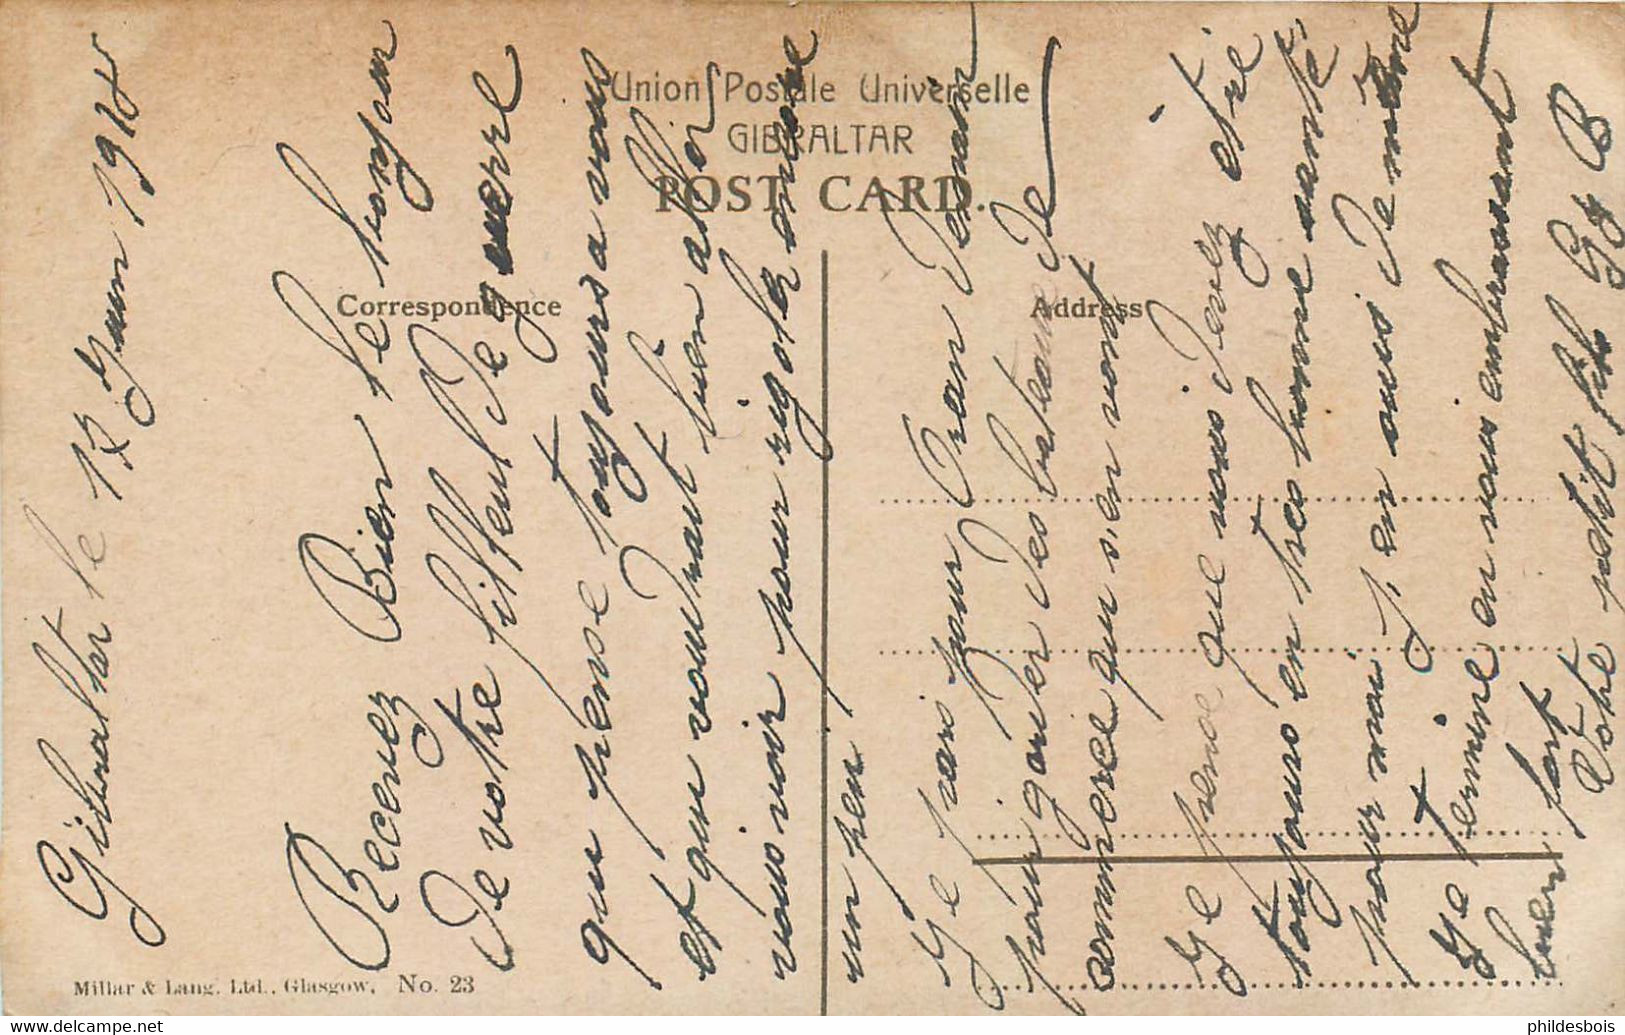 Union Postale Universelle
GIBRALTAR
POST CARD.
Correspondence
Address
Gibraltar le 12 Juin 1918
Recevez Bien le bonjour
De votre filleul De guerre
qui pense toujours a vous
et qui voudrait bien aler
vous voir pour rigoler encore
un peu
Je pars pour Oran Demain
pour garder Des bateaux De
commerce qui s'en vont
Je pense que vous Devez etre
toujours en tres bonne santé
pour moi J'en suis De même
Je termine en vous embrassant
bien fort
Votre petit fils G B
Millar & Lang, Ltd., Glasgow, No. 23
phildesbois